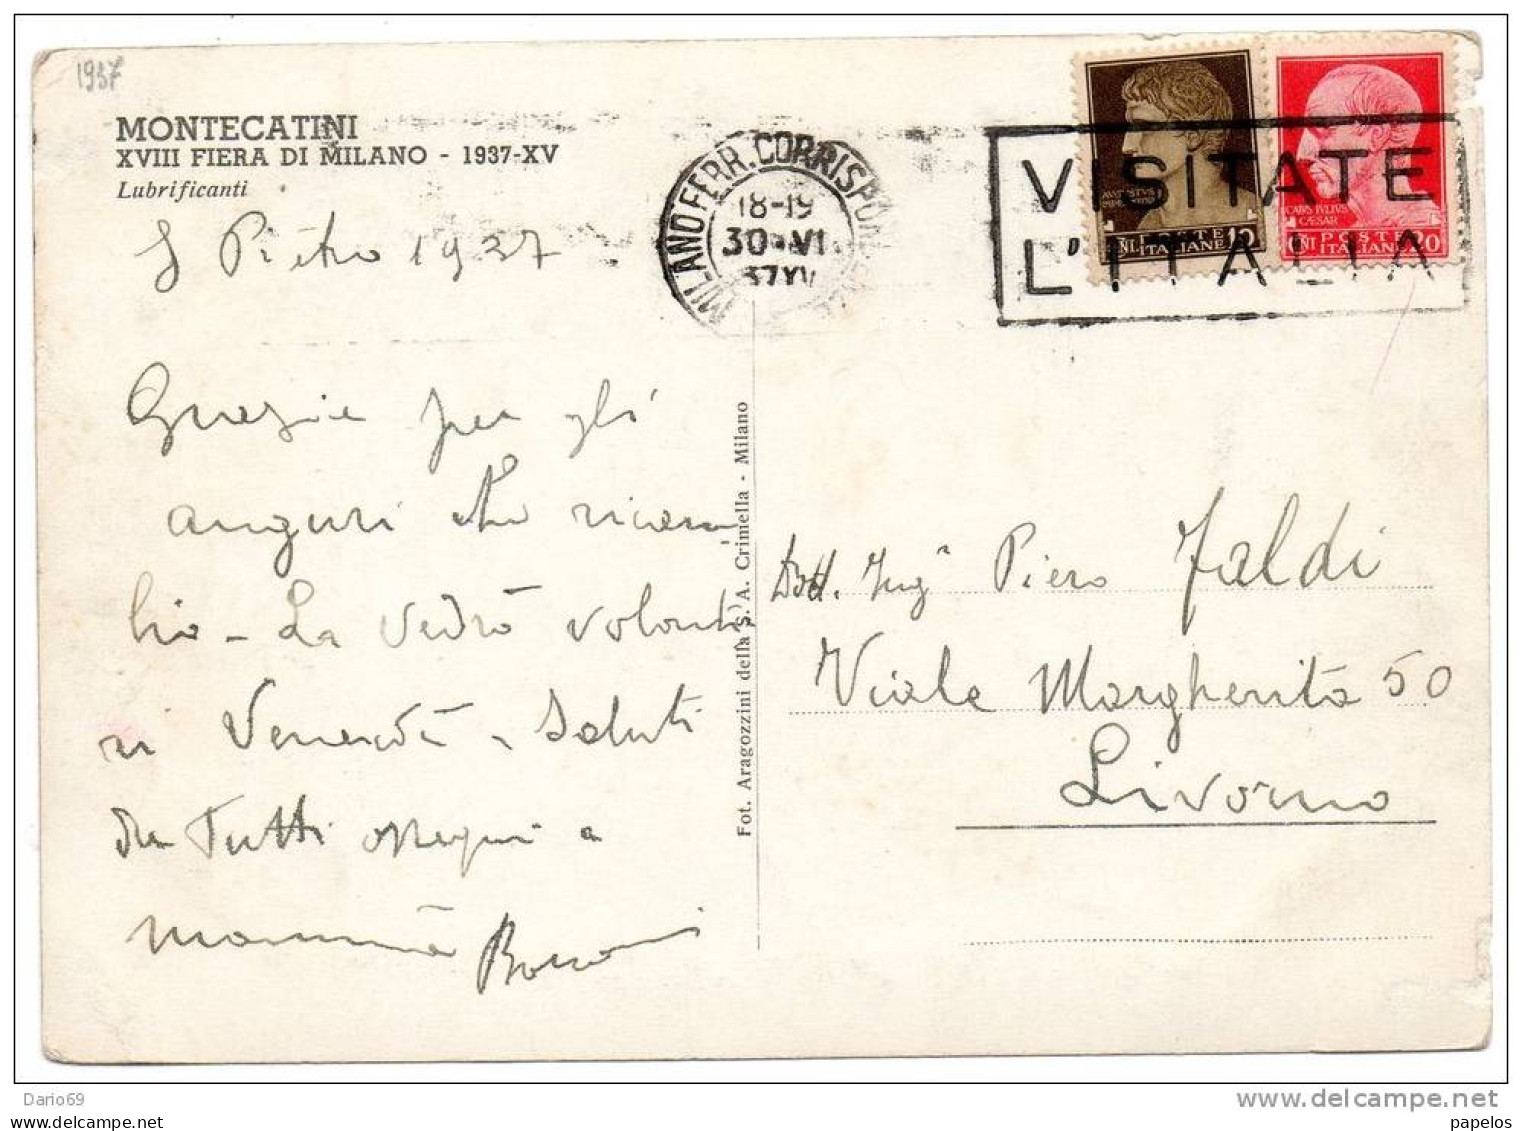 1937
MONTECATINI
XVIII FIERA DI MILANO - 1937-XV
Lubrificanti
S Pietro 1937
Grazie per gli
auguri che ricam
bio - La vedrò volontie
ri Venerdì - Saluti
da Tutti ossequi a
mammà
MILANO FERR. CORRISPONDENZE
18-19
30 VI
37XV
VISITATE
L'ITALIA
AVGVSTVS
POSTE
ITALIANE
10
CAIVS IVLIVS
CAESAR
POSTE
ITALIANE
20
Fot. Aragozzini della S. A. Crimella - Milano
Dott. Ingr Piero Faldi
Viale Margherita 50
Livorno
Dario69
www.delcampe.net
papelos